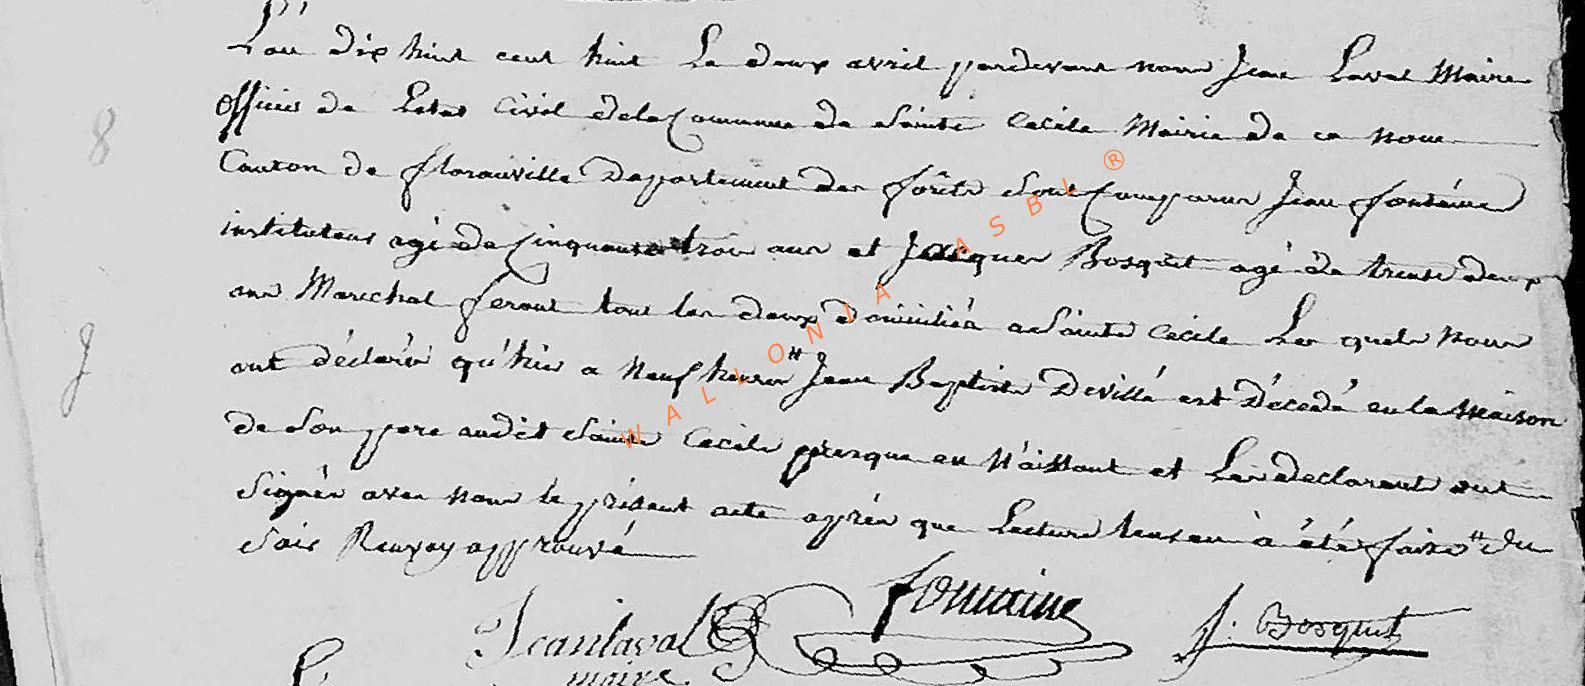 8
L'an dix huit cent huit Le deux avril pardevant nous Jean Laval Maire
officier de Letat Civil de la Commune de Sainte Cecile Mairie de ce nom
Canton de florauville Departement des forêts Sont Comparus Jean fontaine
instituteur agé de Cinquante trois ans et Jacques Bosquet agé de trente deux
ans Marechal ferant tous les deux domiciliés a Sainte Cecile Les quels nous
ont déclaré qu'hier a neuf heures " Jean Baptiste Devillé est Décédé en la Maison
de Son pere audit Sainte Cecile presque en Naissant et Les declarant ont
Signés avec nous le présent acte aprés que Lecture leur en à été faite " du
Soir Renvoy approuvé
Jean Laval
maire
fontaine
J. Bosquet
WALLONIA ASBL ®